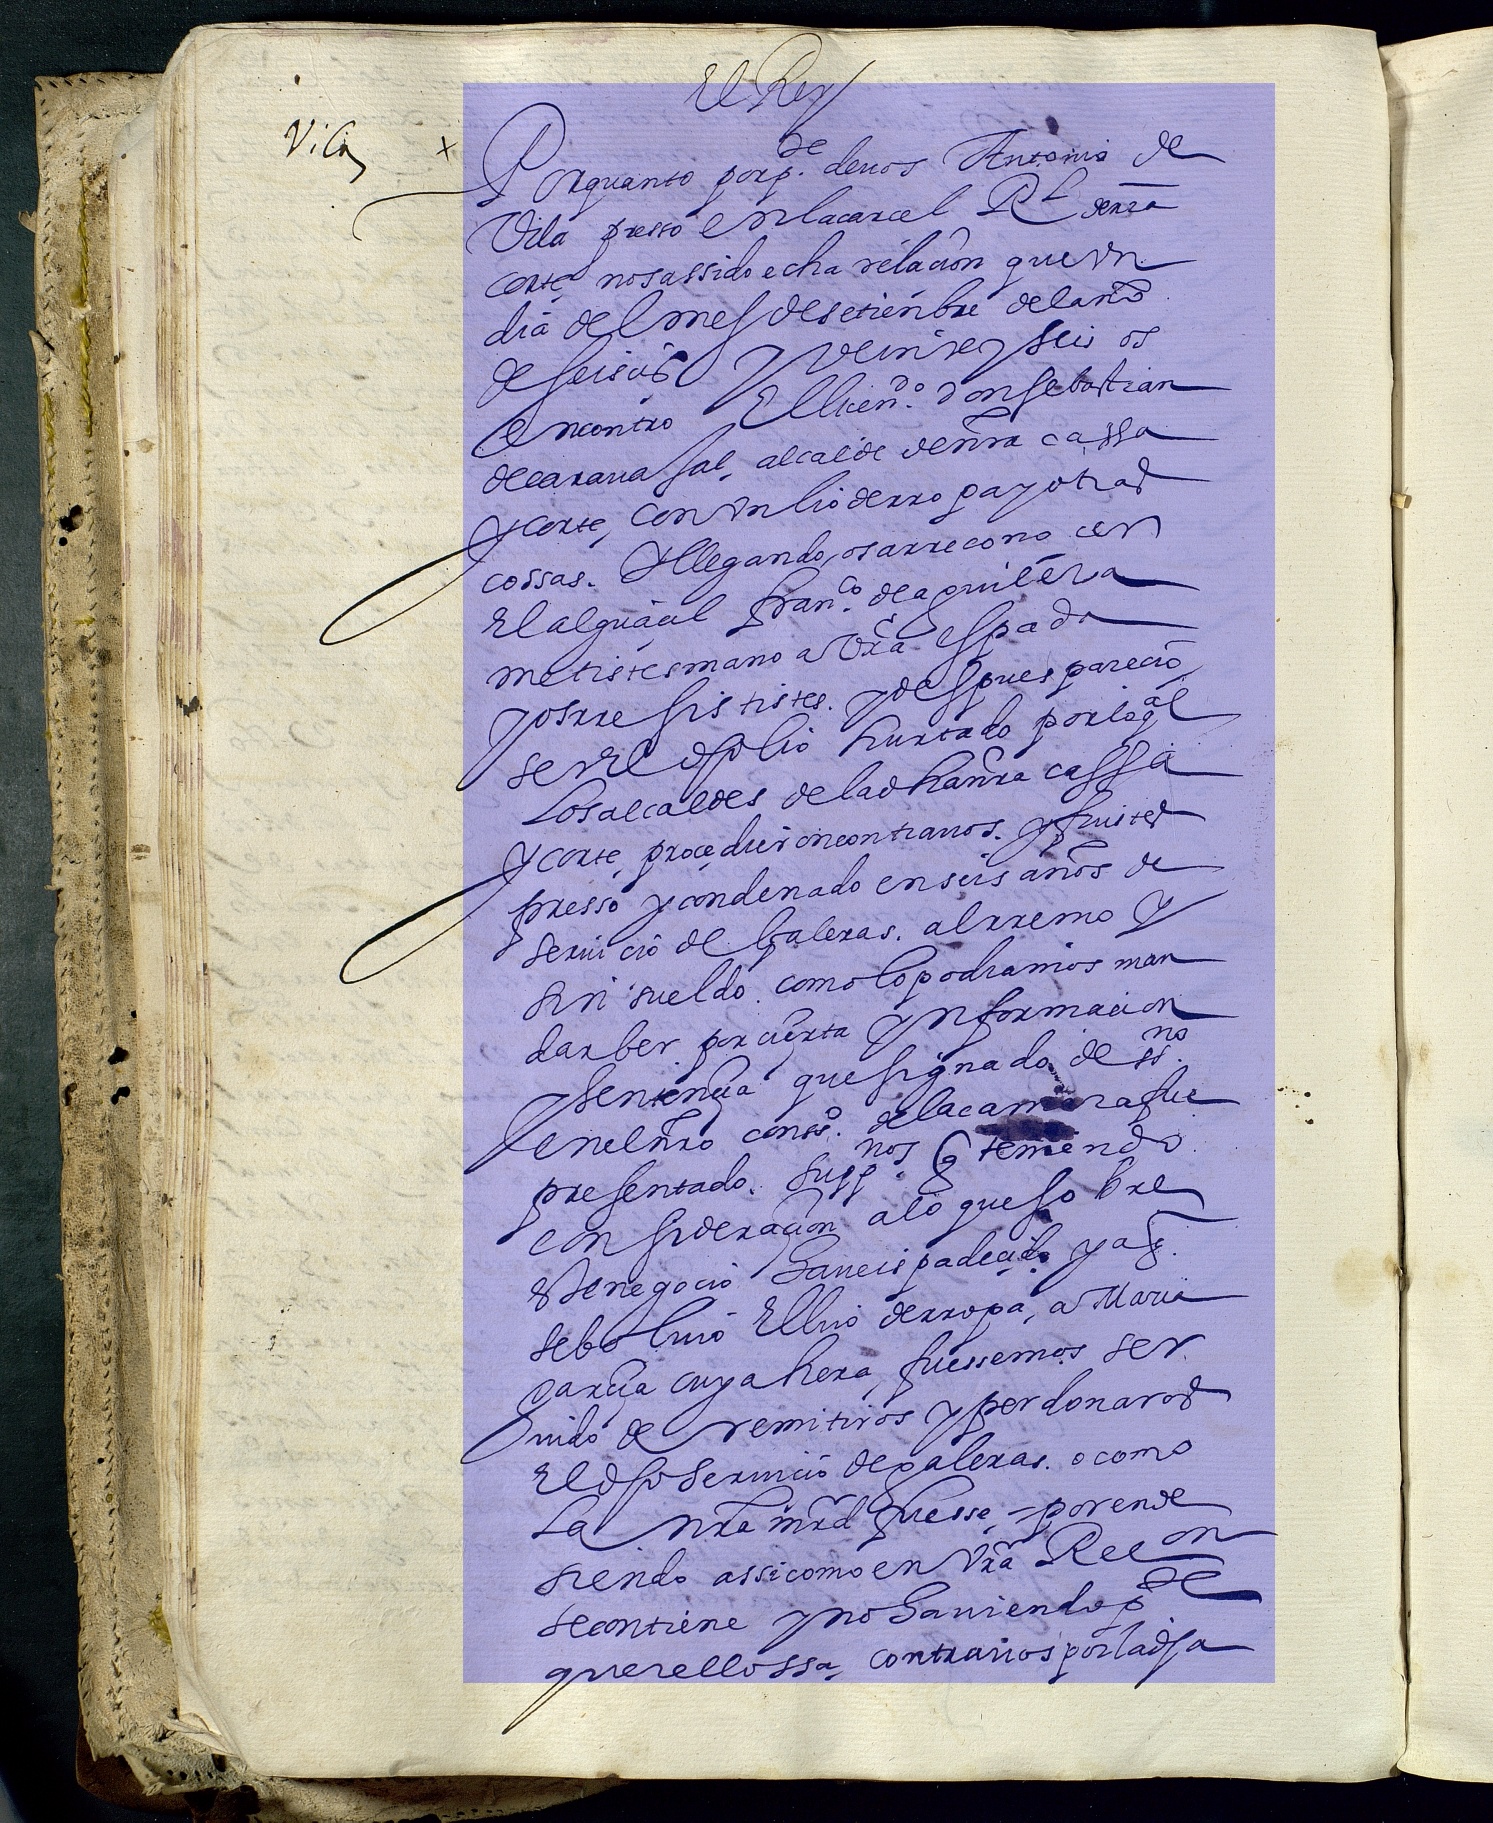 El Rey
Vila
Porquanto porp.te devos Antonio de
Vila presso en la carcel Rl denra
corte nos assido echa relacion que un
dia del mes de setienbre del año
de seisos y veinte y seis os
encontro El licendo. don sebastian
de caravajal, alcalde denra cassa
y corte, con un lio de rropa y otras
cossas. Y llegando, os a rreconocer
El alguacil Franco. de aguilera
metistes mano a vra espada
y os rresististes. y despues parecio
ser El dho lio hurtado por lo ql
Los alcaldes de la dha nra cassa
y corte, procedieron contra vos. y fuistes
presso y condenado en seis años de
servicio de galeras. al rremo y
sin sueldo. como lo podriamos man
dar ber por cierta ynformacion
y sentencia que signado de ssno.
en el nro consso. de la camara fue
presentado. supp.nos q teniendo
consideracion a lo que sobre
este negocio haveis padecido y a q.
se bolvio El lio de rropa, a Maria
garcia cuya hera, fuessemos ser
vido de remitiros y perdonaros
El dho servicio de galeras. o como
La nra mrd fuesse, – por ende
siendo assi como en vra Reon
se contiene y no haviendo pte
querellossa, contra vos por la dha